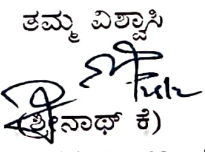 ತಮ್ಮ ವಿಶ್ವಾಸಿ
(ಶ್ರೀನಾಥ್ ಕೆ)